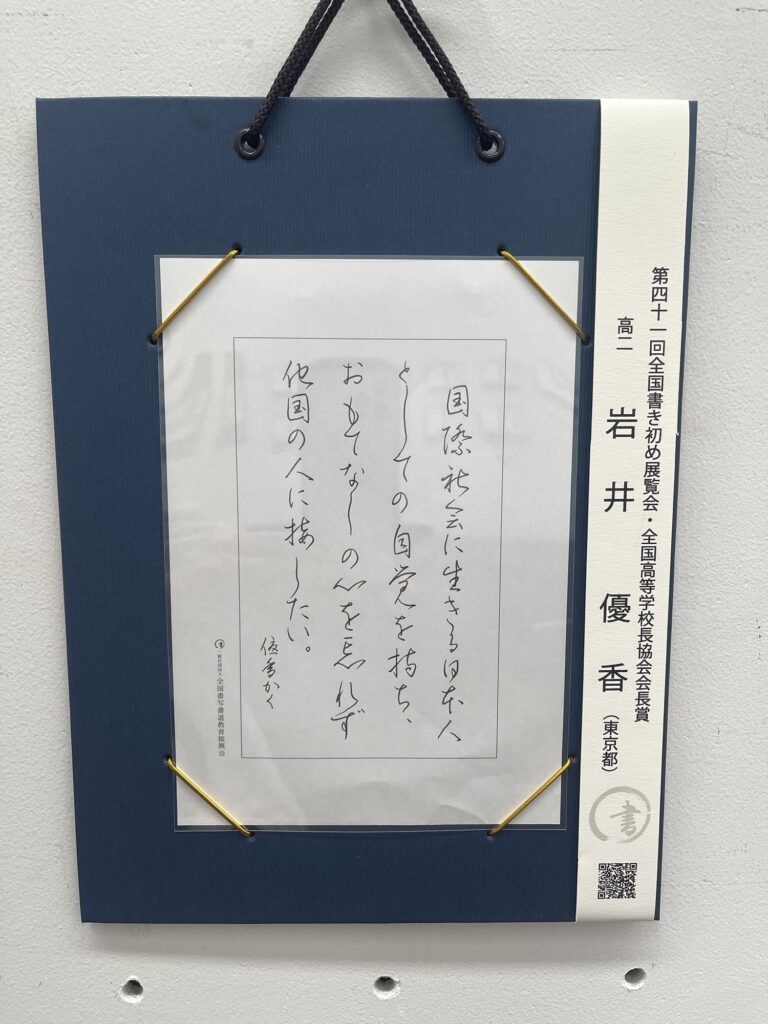 第四十一回全国書き初め展覧会・全国高等学校長協会会長賞
高二 岩井 優香（東京都）
書
国際社会に生きる日本人
としての自覚を持ち、
おもてなしの心を忘れず
他国の人に接したい。
優香かく
一般社団法人 全国書写書道教育振興会